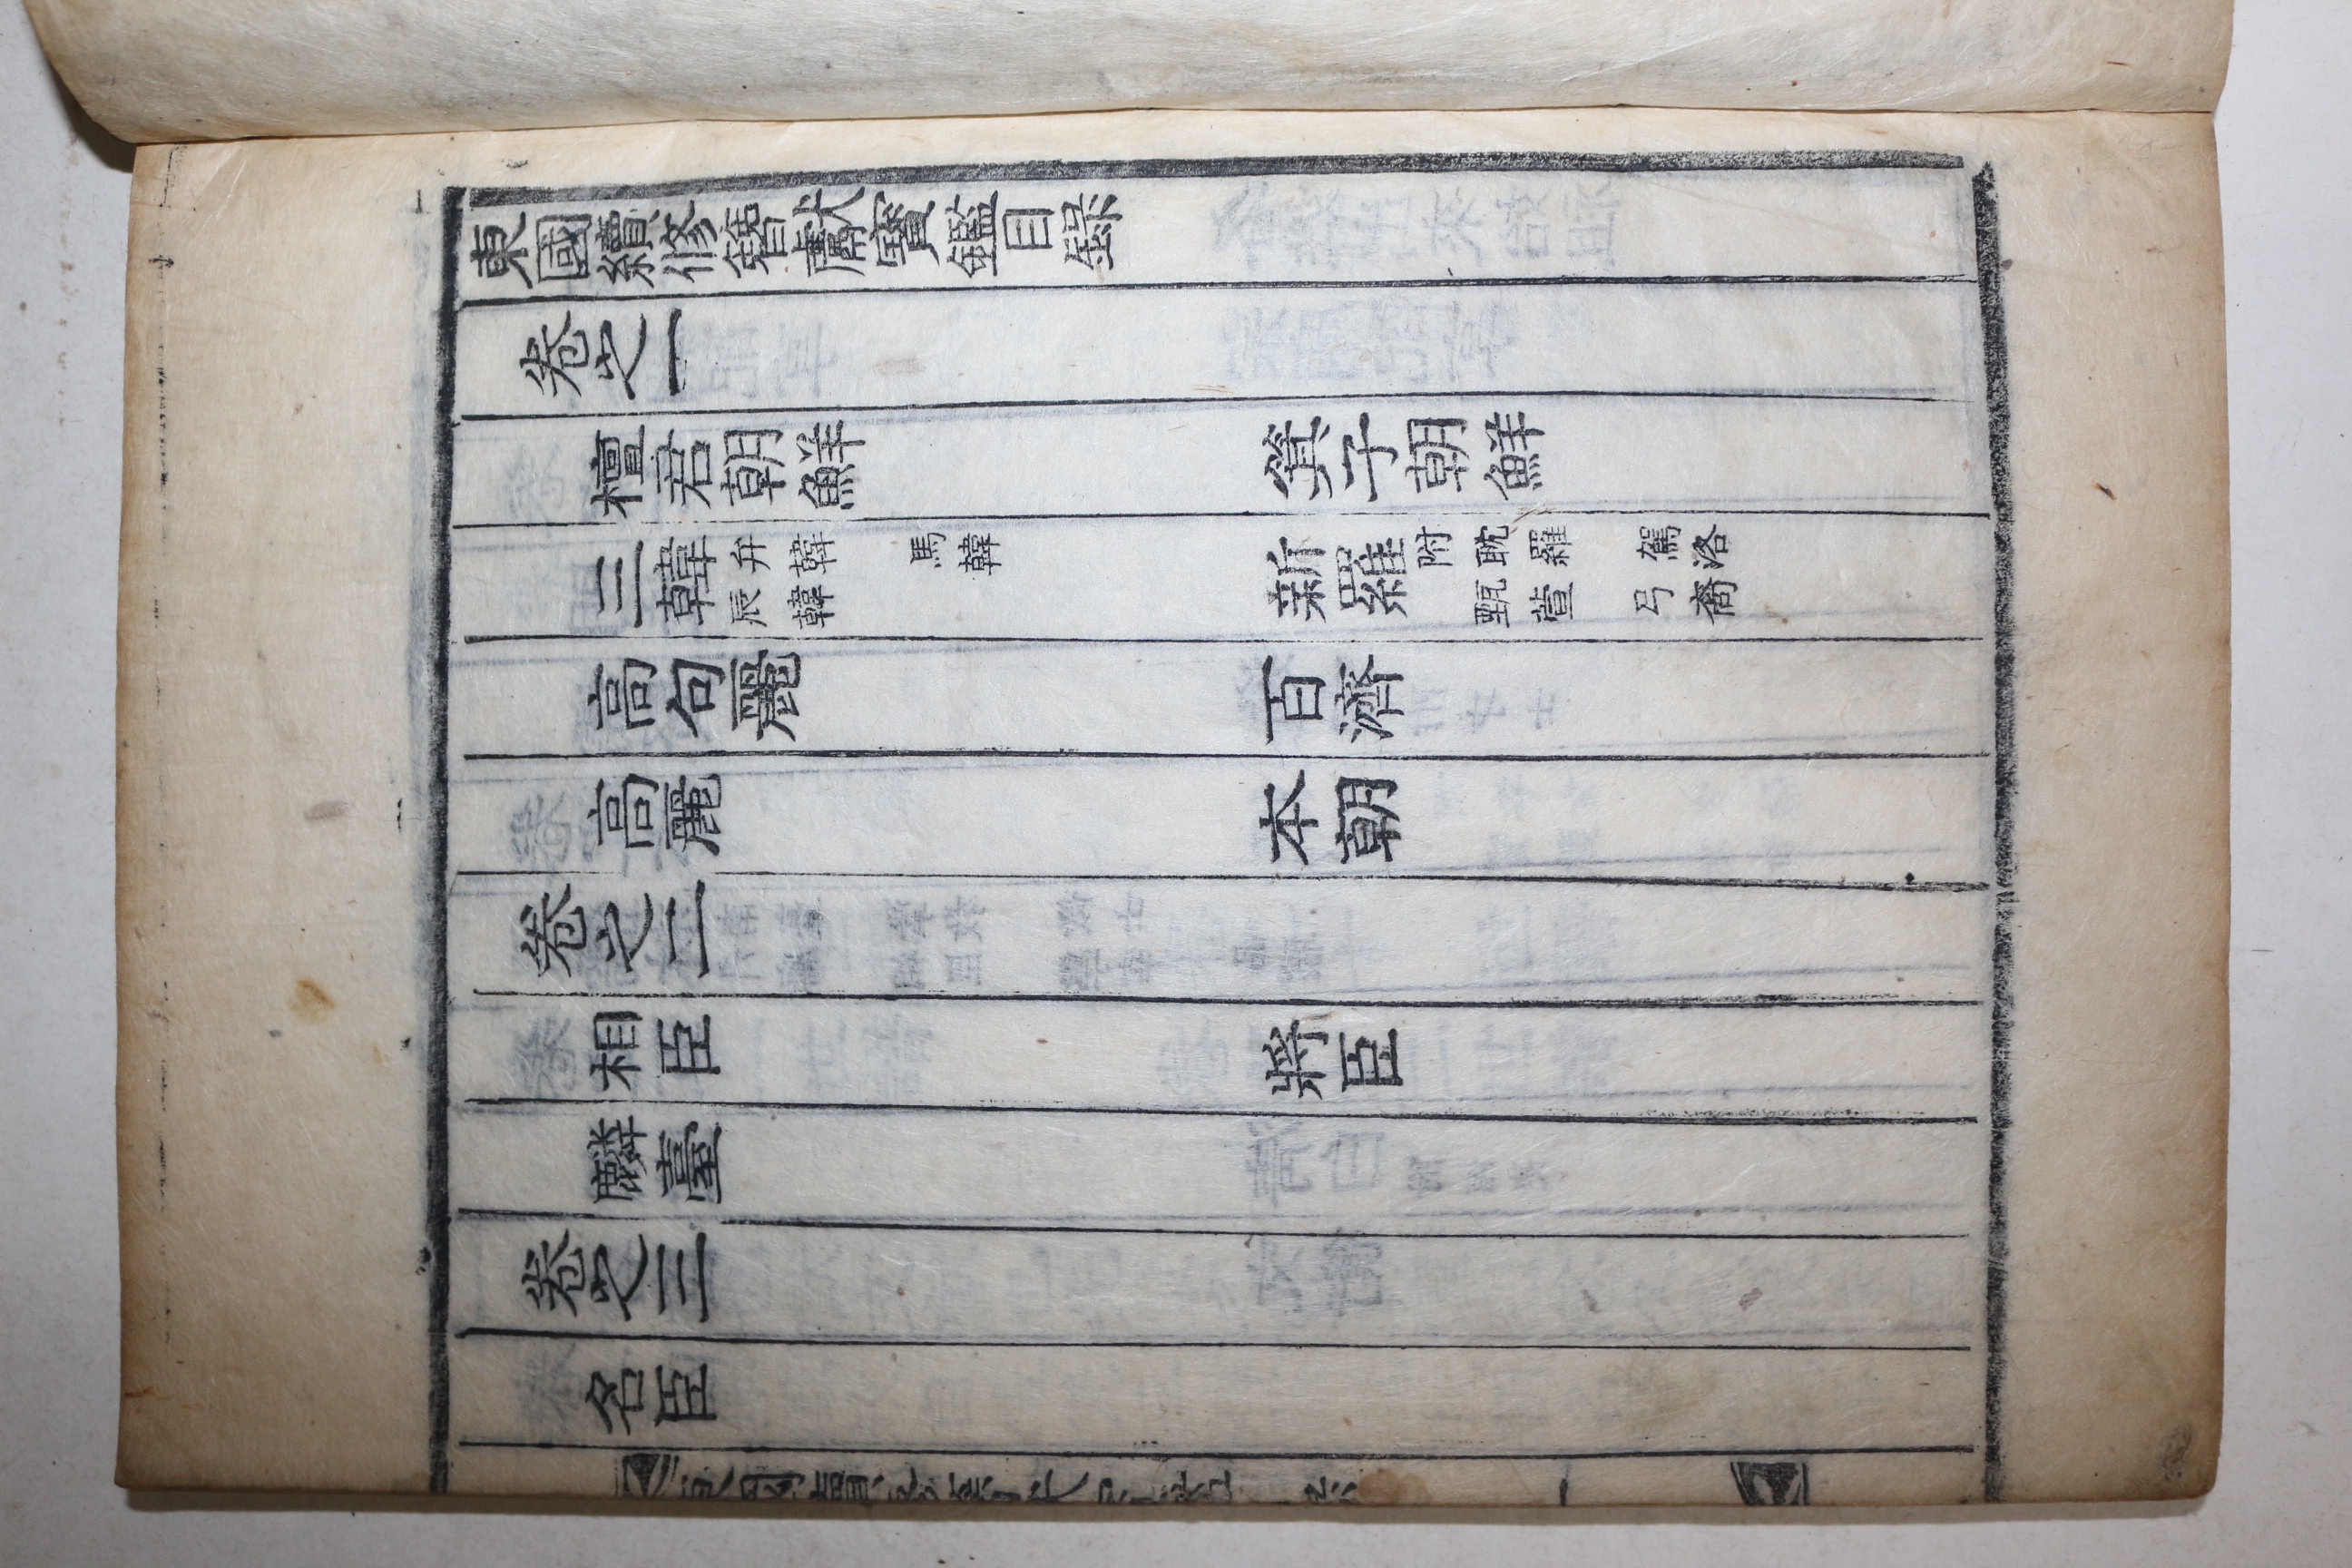 東國續修簪獻寶鑑目錄
卷之一
檀君朝鮮 箕子朝鮮
三韓 弁韓 馬韓 辰韓 新羅 附 耽羅 駕洛 甄萱 弓裔
高句麗 百濟
高麗 本朝
卷之二
相臣 將臣
麟臺
卷之三
名臣